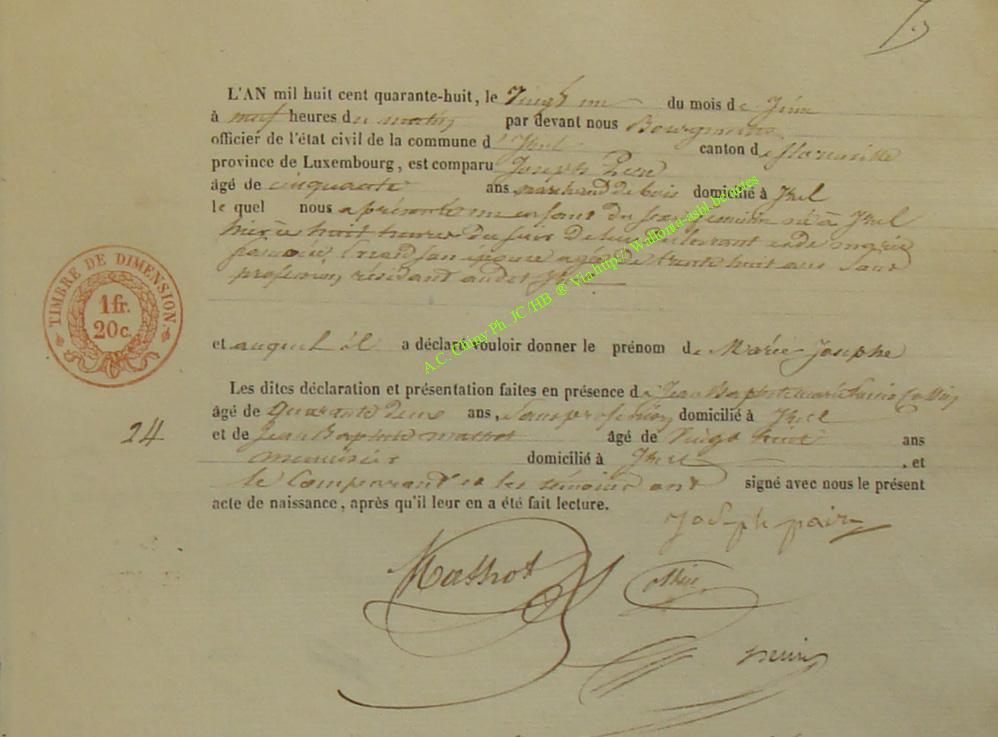 L'AN mil huit cent quarante-huit, le Vingt un du mois de Juin
à neuf heures du matin par devant nous Bourgmestre
officier de l'état civil de la commune d'Izel canton de florenville
province de Luxembourg, est comparu Joseph
âgé de cinquante ans marchand de bois domicilié à Izel
le quel nous a présenté un enfant du sexe féminin né à Izel
hier à huit heures du soir de lui déclarant et de marie
son épouse agée de trente huit ans Sans
profession, résidant audit Izel
et auquel il a déclaré vouloir donner le prénom de Marie Josephe
Les dites déclaration et présentation faites en présence de Jean Baptiste Collin
âgé de Quarante deux ans, Sans profession, domicilié à Izel
24
et de Jean Baptiste Massot âgé de Vingt huit ans
menuisier domicilié à Izel , et
le Comparant et les témoins ont signé avec nous le présent
acte de naissance, après qu'il leur en a été fait lecture.
Joseph
Massot Collin
TIMBRE DE DIMENSION.
1 fr.
20 c.
A.C. Chiny Ph. JC/HB @ Via http://Wallonia-asbl.be/actes